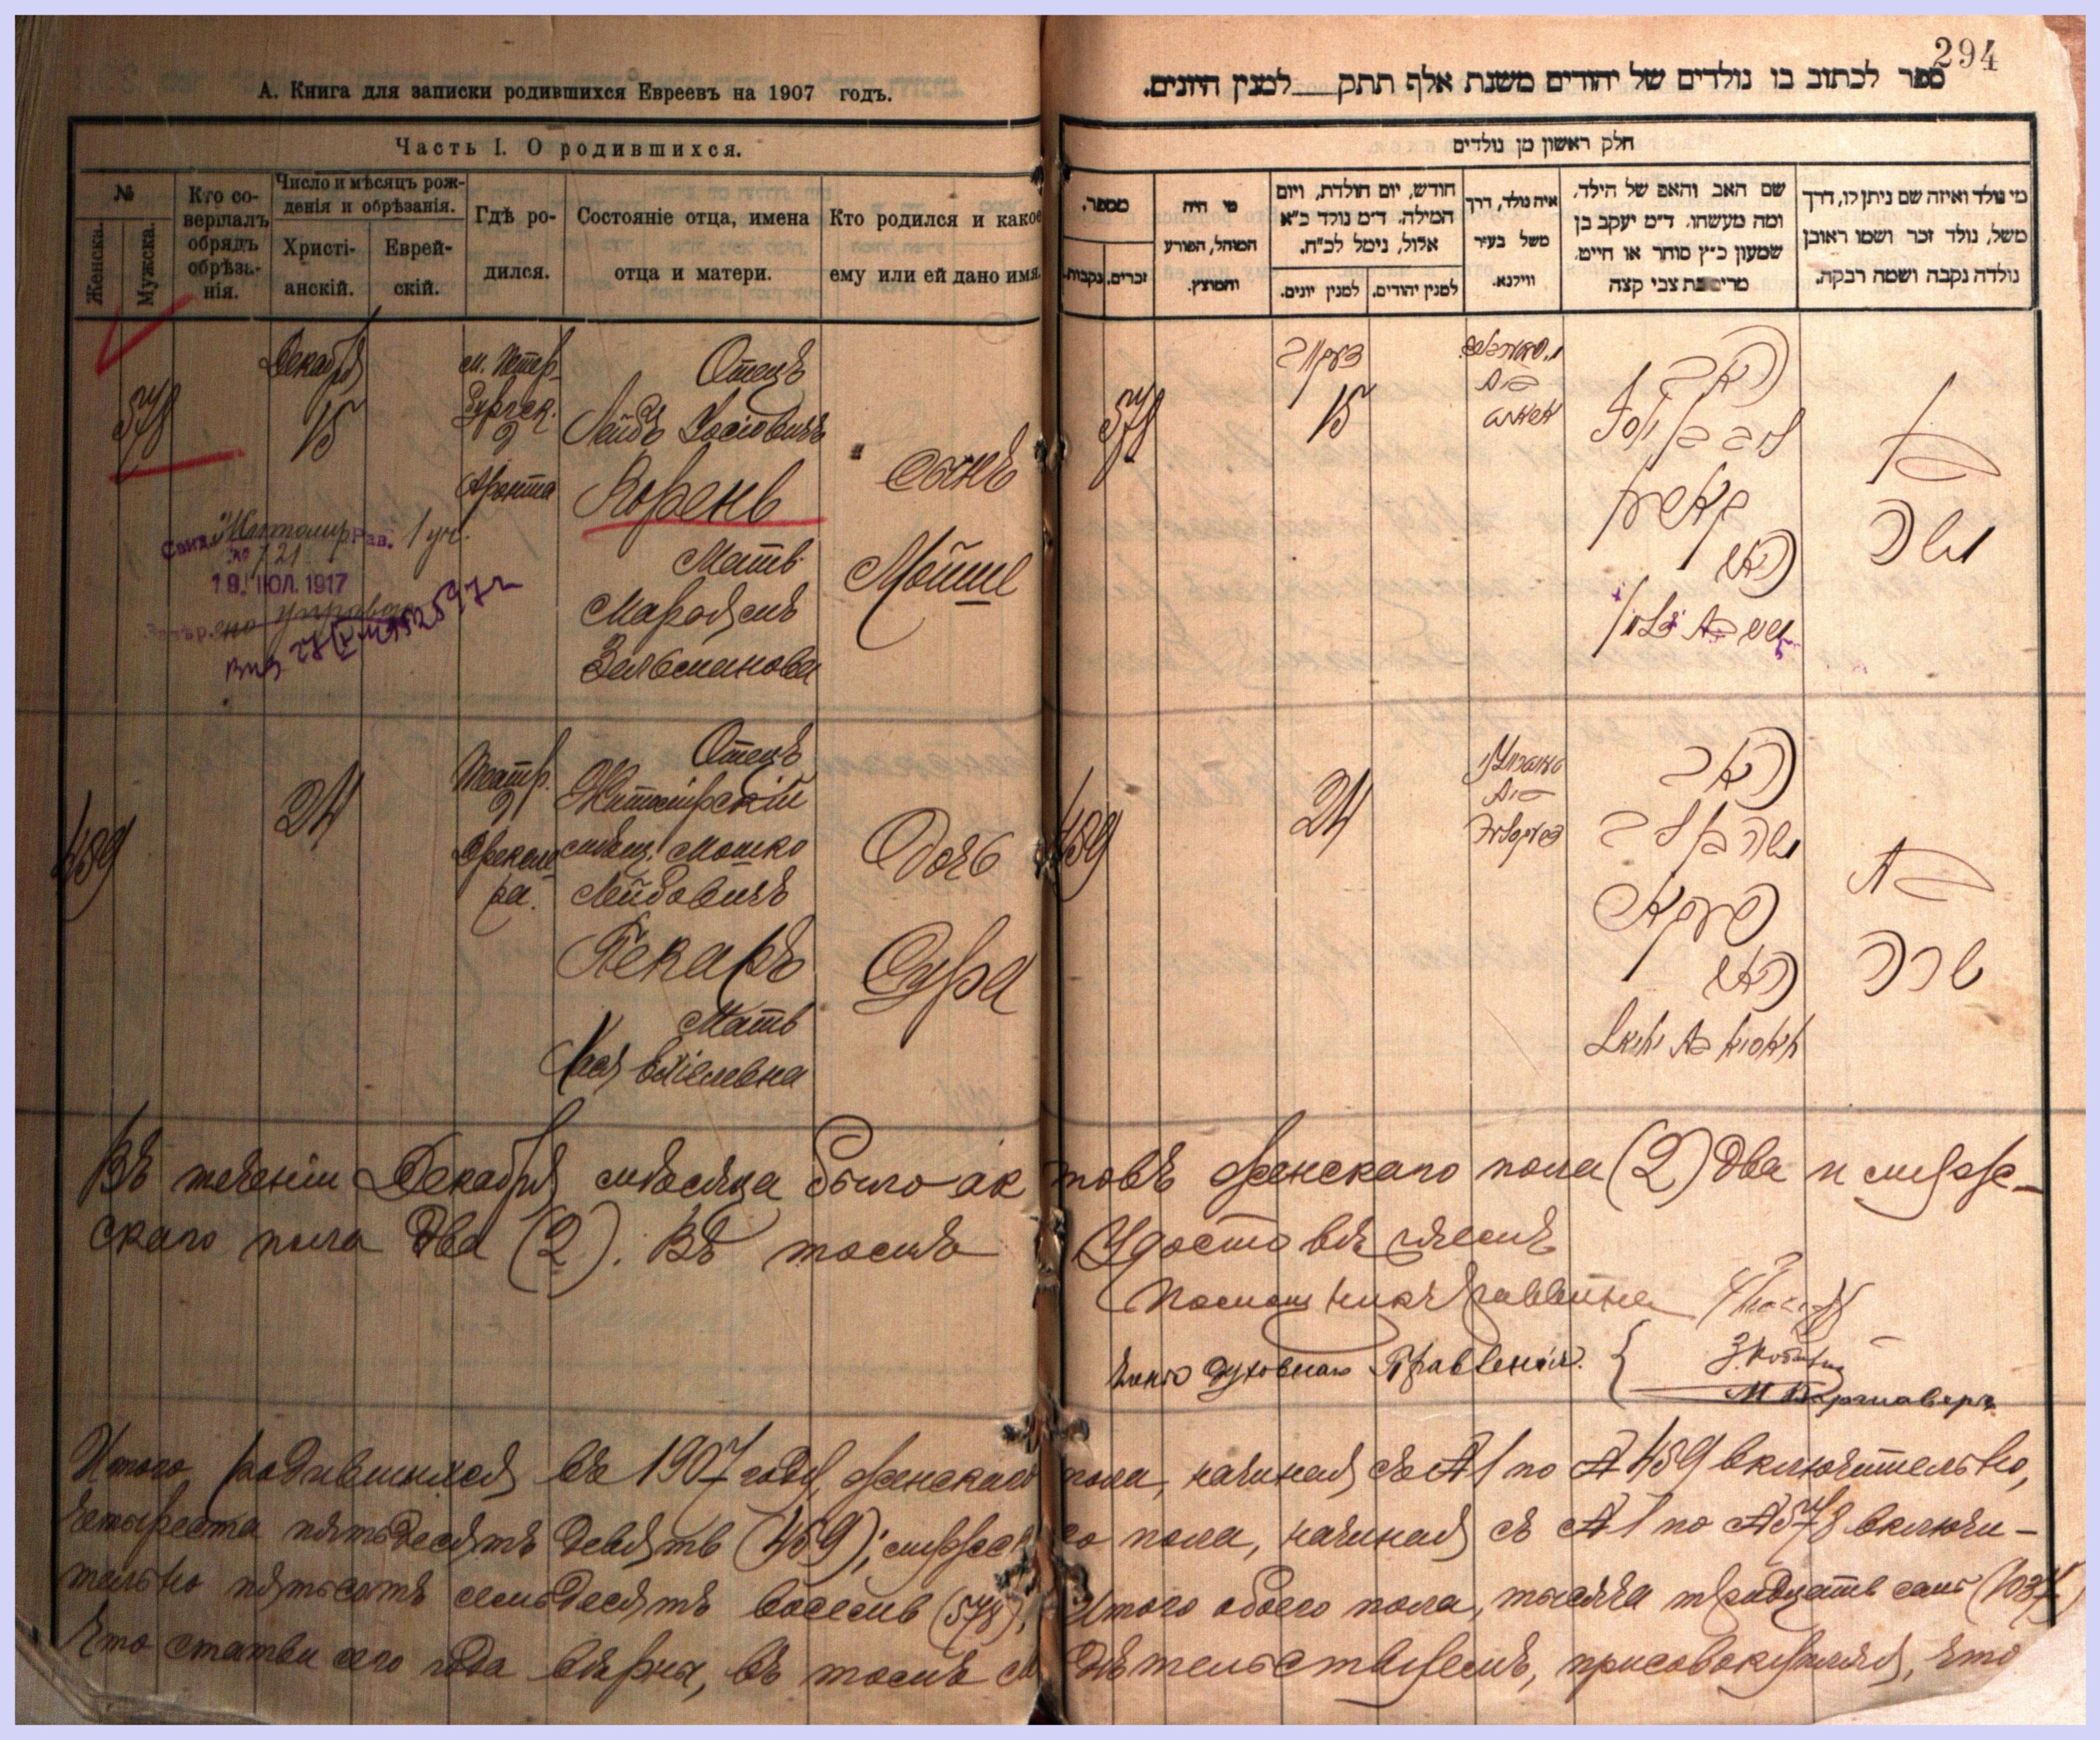 294
А. Книга для записки родившихся Евреевъ на 1907 годъ.
Часть I. О родившихся.
№
Женска.
Мужска.
Кто со-
вершалъ
обрядъ
обрѣза-
нія.
Число и мѣсяцъ рож-
денія и обрѣзанія.
Христі-
анскій.
Еврей-
скій.
Гдѣ ро-
дился.
Состояніе отца, имена
отца и матери.
Кто родился и какое
ему или ей дано имя.
578
Декабря
15
Отецъ
Лейбъ Іосіовичъ
Корень
Мать
Марьямъ
Зельмановна
сынъ
Мойше
Свид. Житомир Рав. 1 уч.
№ 721
19. ІЮЛ. 1917
459
24
Театр.
Отецъ
Житомірскій
мѣщ. Мошко
Лейбовичъ
Пекаръ
Мать
Хая
Дочь
Сура
ספר לכתוב בו נולדים של יהודים משנת אלף תתק למנין היונים.
חלק ראשון מן נולדים
מספר.
זכרים.
נקבות.
מי היה
המוהל, הפורע
והמוצץ.
חודש, יום הולדת, ויום
המילה. ד״מ נולד כ״א
אלול, נימל לכ״ח.
למנין יונים.
למנין יהודים.
איה נולד, דרך
משל בעיר
ווילנא.
שם האב והאם של הילד.
ומה מעשהו. ד״מ יעקב בן
שמעון כ״ץ סוחר או חייט.
מרים בת צבי קצה
מי נולד ואיזה שם ניתן לו, דרך
משל, נולד זכר ושמו ראובן
נולדה נקבה ושמה רבקה.
578
דעקאבר
15
האב
ליב בן יוסף
קארען
האם
מרים בת זלמן
בן
משה
459
24
האב
משה בן ליב
פעקאר
האם
בת
שרה
Въ теченіи Декабря мѣсяца было актовъ женскаго пола (2) два и муже-
скаго пола два (2). Въ томъ удостовѣряемъ
Помощникъ Раввина
Члены Духовнаго Правленія.
Итого родившихся въ 1907 году, женскаго пола, начиная съ № 1 по № 459 включительно,
четыреста пятьдесятъ девять (459); мужескаго пола, начиная съ № 1 по № 578 включи-
тельно пятьсотъ семьдесятъ восемь (578), Итого обоего пола, тысяча тридцать семь (1037)
Что статьи сего года вѣрны, въ томъ свидѣтельствуемъ, присовокупляя, что